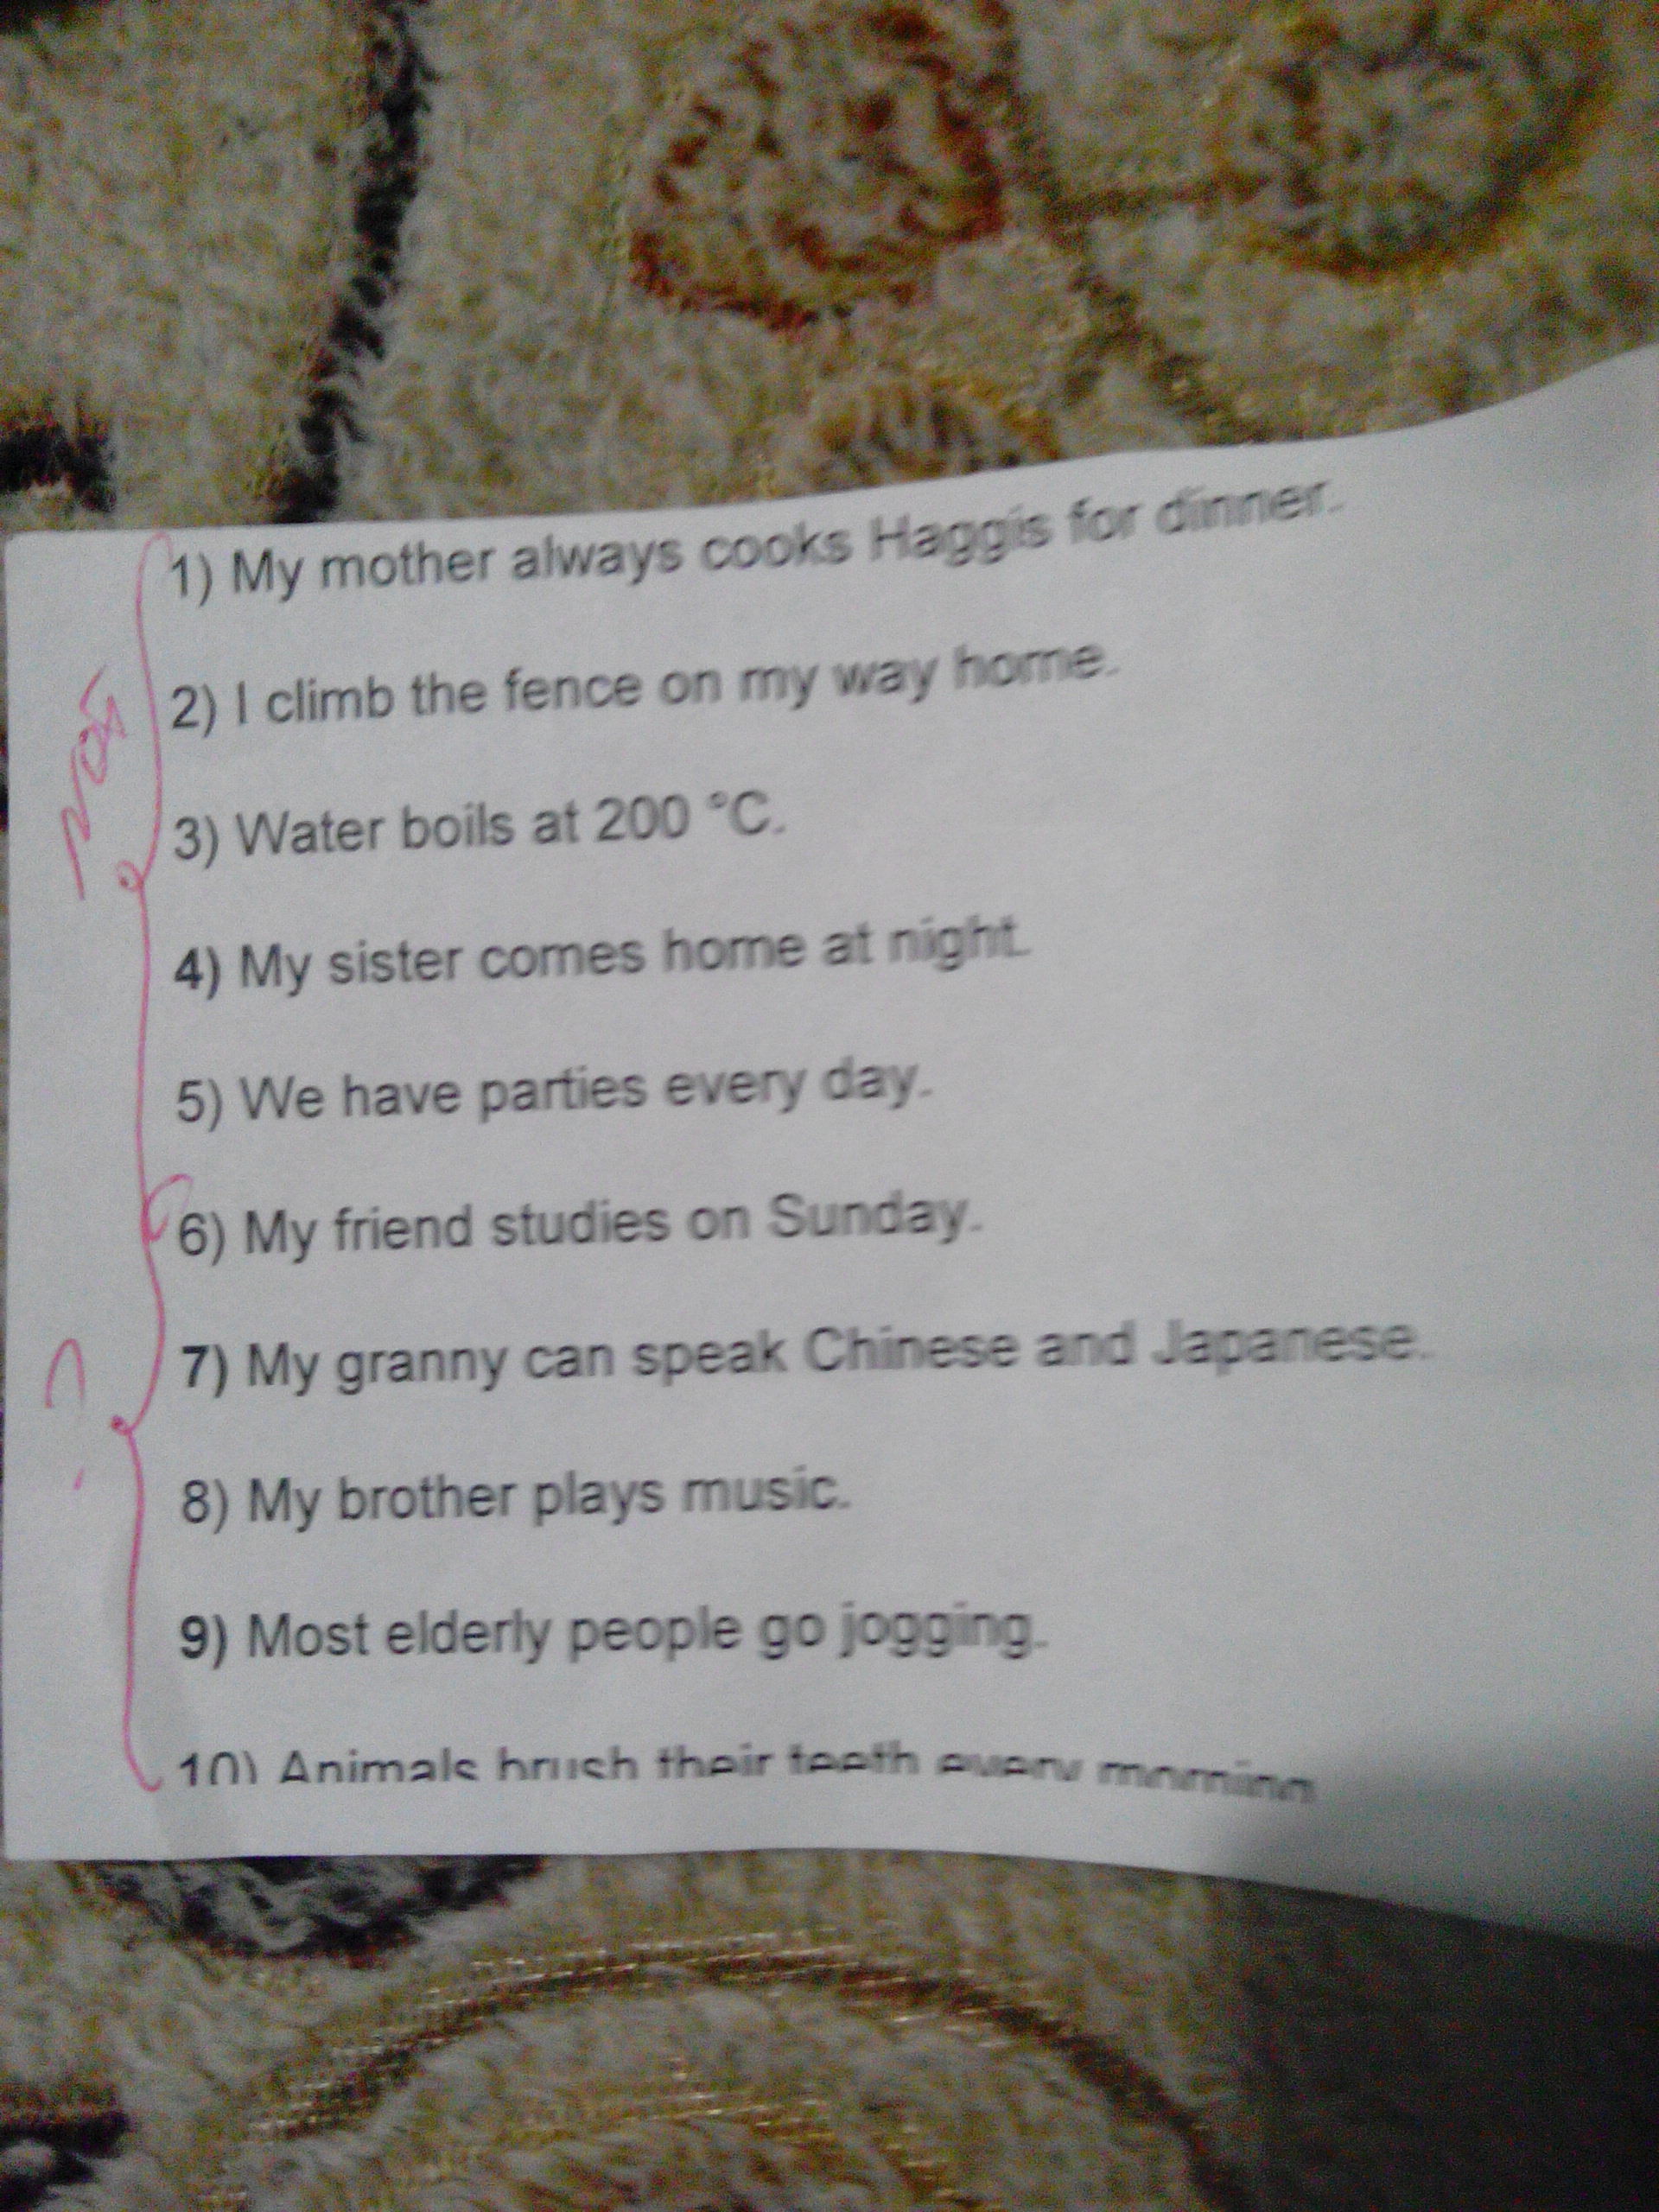 1) My mother always cooks Haggis for dinner.
2) I climb the fence on my way home.
3) Water boils at 200 °C.
4) My sister comes home at night.
5) We have parties every day.
6) My friend studies on Sunday.
7) My granny can speak Chinese and Japanese.
8) My brother plays music.
9) Most elderly people go jogging.
10) Animals brush their teeth every morning
not
?